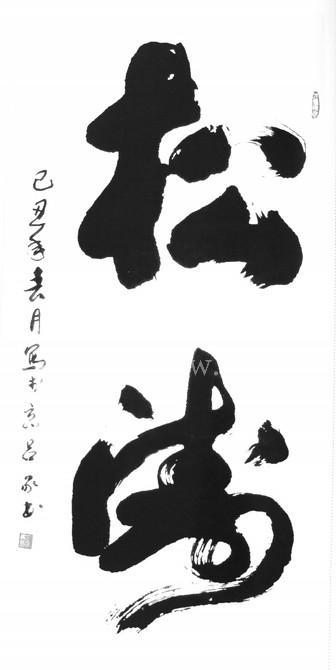 松涛
己丑年春月写于京吕书